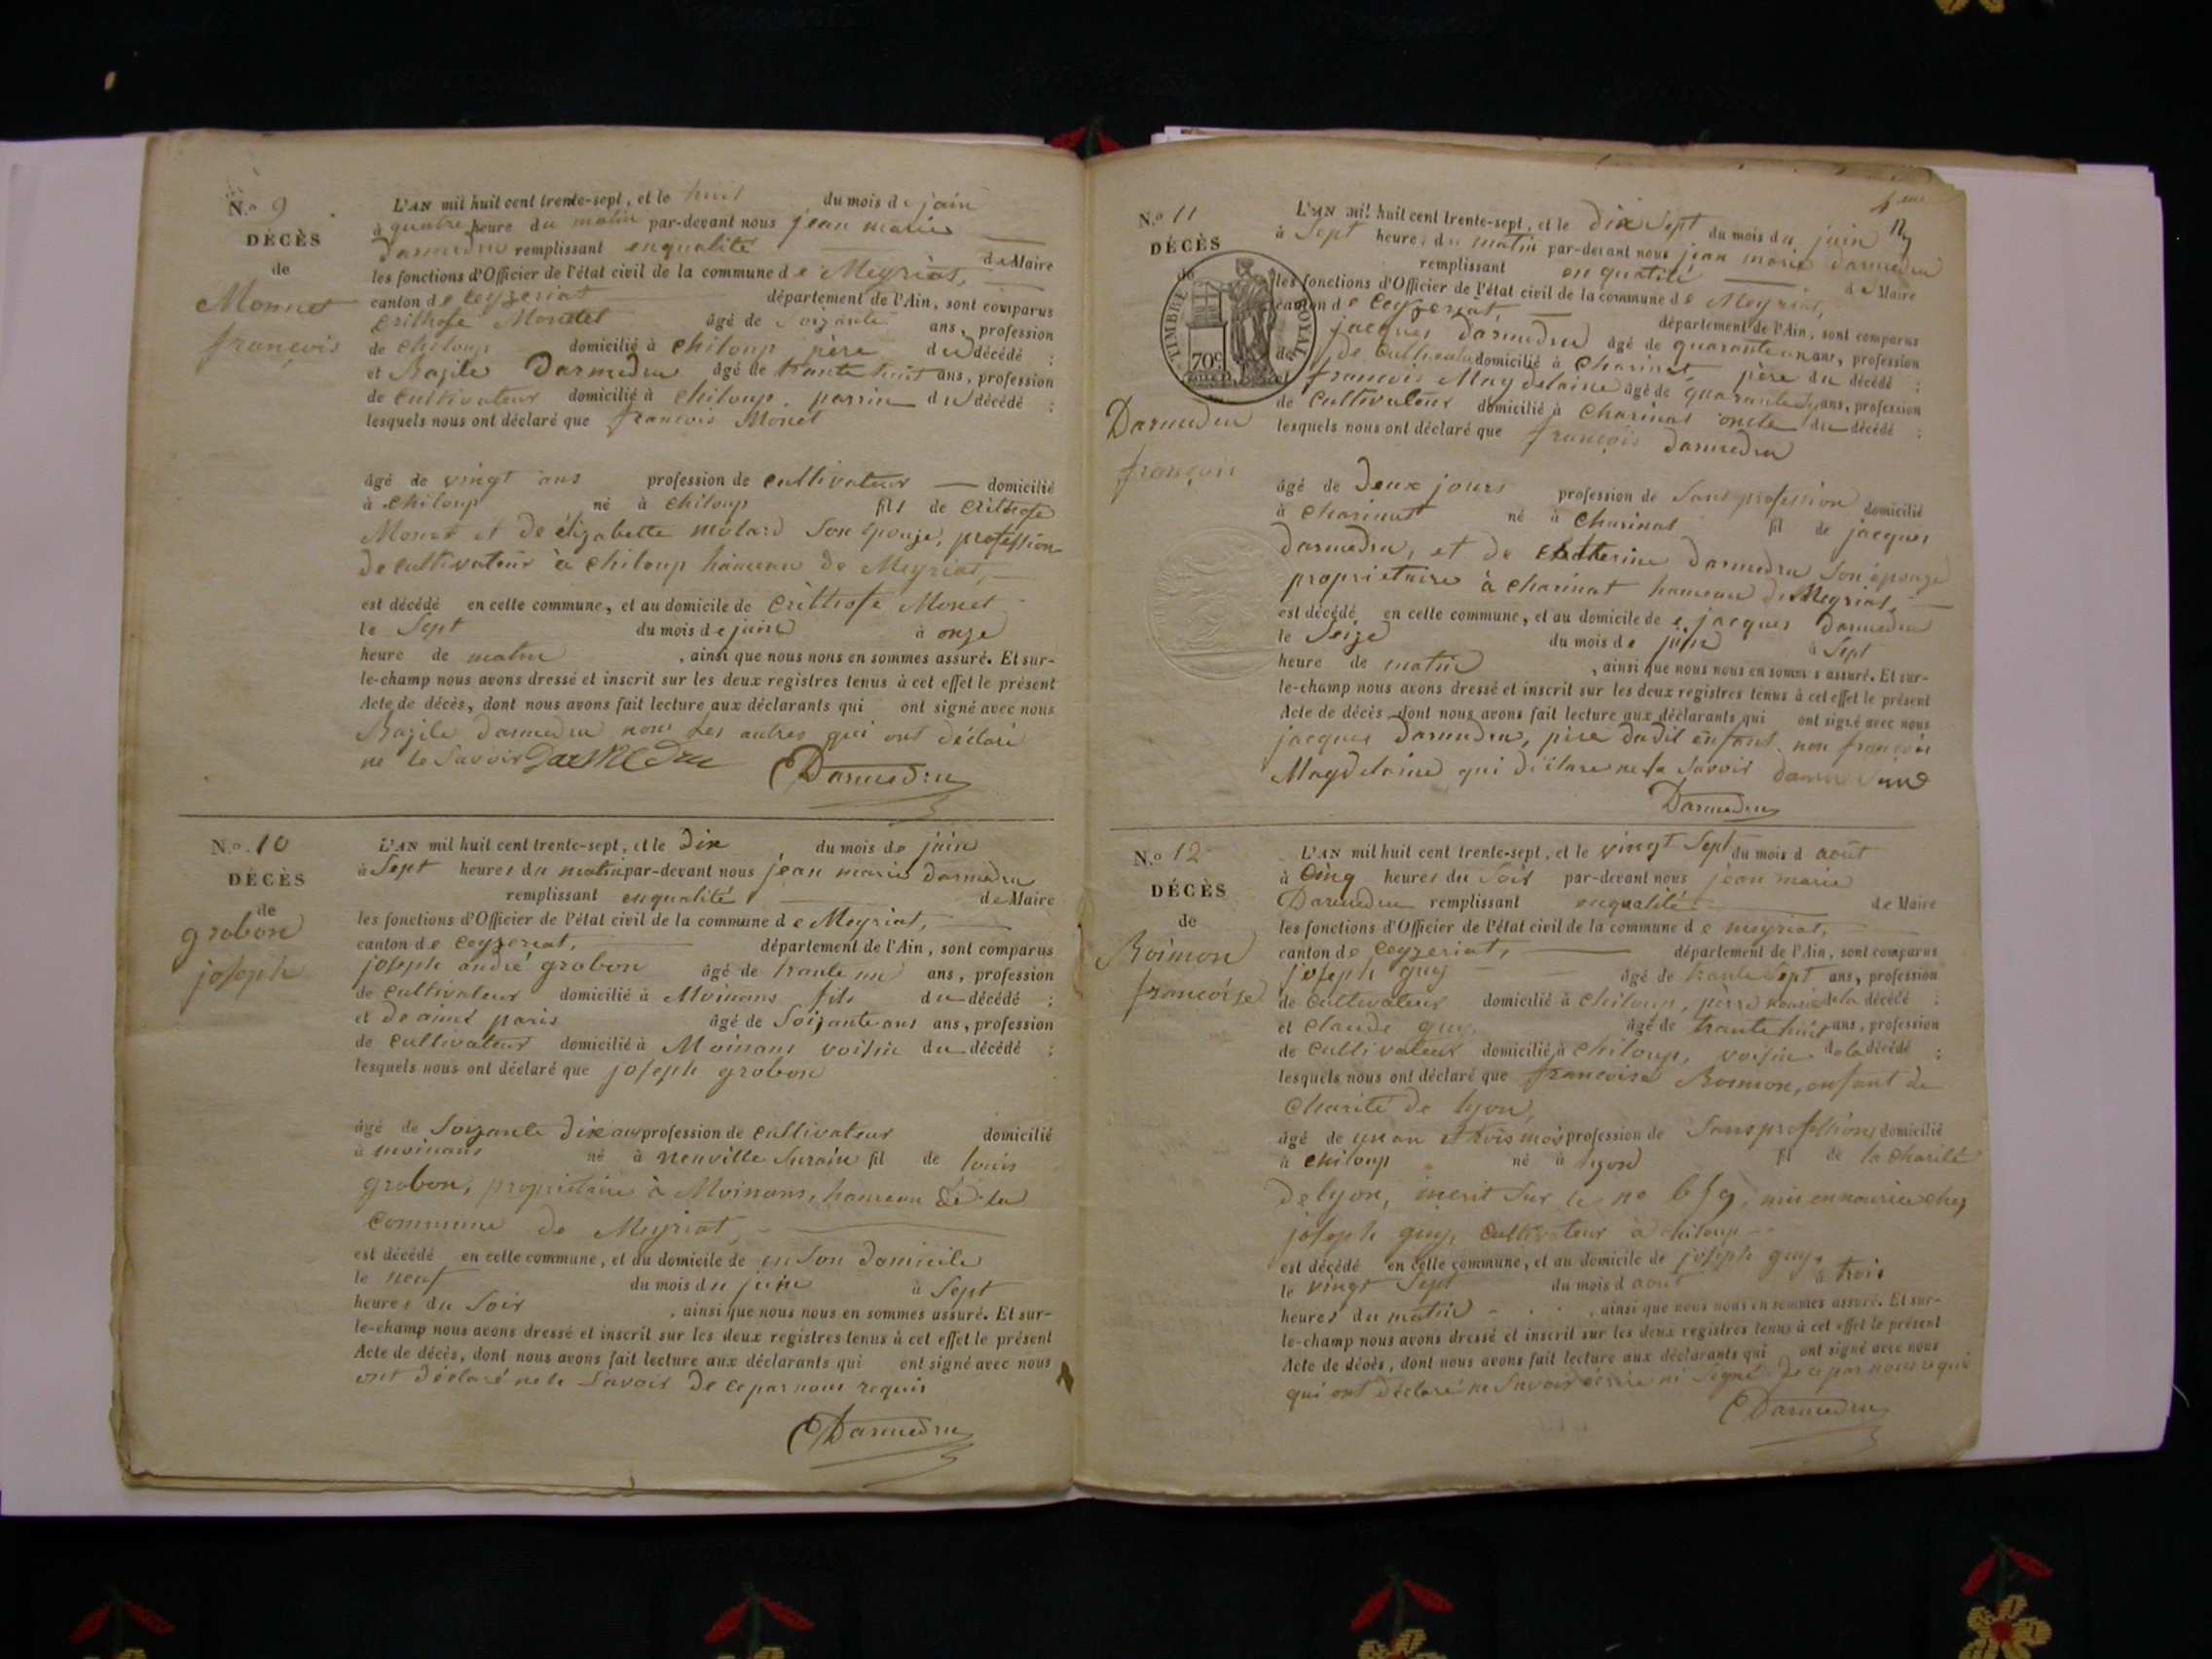 N.º 9
DÉCÈS
de
Monnet
françois
L'AN mil huit cent trente-sept, et le huit du mois de juin
à quatre heure du matin par-devant nous jean marie
Darmedru remplissant enqualité de Maire
les fonctions d'Officier de l'état civil de la commune de Meyriat,
canton de Ceyzeriat département de l'Ain, sont comparus
Monet âgé de Soizante ans, profession
de chiloup domicilié à chiloup père du décédé ;
et Bazile Darmedru âgé de trante huit ans, profession
de cultivateur domicilié à chiloup. parrin du décédé ;
lesquels nous ont déclaré que francois Monet
âgé de vingt ans profession de cultivateur domicilié
à chiloup né à chiloup fils de
Monet et de élizabette molard son épouze, profession
de cultivateur à chiloup hameau de Meyriat,
est décédé en cette commune, et au domicile de Monet
le Sept du mois de juin à onze
heure de matin , ainsi que nous nous en sommes assuré. Et sur-
le-champ nous avons dressé et inscrit sur les deux registres tenus à cet effet le présent
Acte de décès, dont nous avons fait lecture aux déclarants qui ont signé avec nous
Bazile Darmedru non les autres qui ont déclaré
ne le Savoir Darmedru Darmedru
N.º 10
DÉCÈS
de
grobon
joseph
L'AN mil huit cent trente-sept, et le Dix du mois de juin
à Sept heures du matin par-devant nous jean marie Darmedru
remplissant enqualité de Maire
les fonctions d'Officier de l'état civil de la commune de Meyriat,
canton de Ceyzeriat, département de l'Ain, sont comparus
joseph andré grobon âgé de trante un ans, profession
de cultivateur domicilié à Moinans fils du décédé ;
et paris âgé de Soizante ans ans, profession
de cultivateur domicilié à Moinans voisin du décédé ;
lesquels nous ont déclaré que joseph grobon
âgé de Soizante Dix ans profession de cultivateur domicilié
à moinans né à neuville Surain fil de louis
grobon, propriétaire à Moinans, hameau de la
Commune de Meyriat,
est décédé en cette commune, et au domicile de en Son domicile
le neuf du mois du juin à Sept
heures du Soir , ainsi que nous nous en sommes assuré. Et sur-
le-champ nous avons dressé et inscrit sur les deux registres tenus à cet effet le présent
Acte de décès, dont nous avons fait lecture aux déclarants qui ont signé avec nous
ont déclaré ne le Savoir de ce par nous requis
Darmedru
N.º 11
DÉCÈS
de
TIMBRE ROYAL
70c
Darmedru
françois
L'AN mil huit cent trente-sept, et le Dix Sept du mois du juin
à Sept heures du matin par-devant nous jean marie Darmedru
remplissant en qualité de Maire
les fonctions d'Officier de l'état civil de la commune de Meyriat,
canton de Ceyzeriat, département de l'Ain, sont comparus
jacques Darmedru âgé de quarante un ans, profession
de domicilié à Charinat père du décédé ;
et francois Magdelaine âgé de quarante ans, profession
de Cultivateur domicilié à Charinat oncle du décédé ;
lesquels nous ont déclaré que françois Darmedru
âgé de Deux jours profession de Sans profession domicilié
à charinat né à Charinat fil de jacques
Darmedru, et de Catherine Darmedru Son épouze
propriétaire à charinat hameau de Meyriat,
est décédé en cette commune, et au domicile de jacques Darmedru
le Seize du mois de juin à Sept
heure de matin , ainsi que nous nous en sommes assuré. Et sur-
le-champ nous avons dressé et inscrit sur les deux registres tenus à cet effet le présent
Acte de décès dont nous avons fait lecture aux déclarants qui ont signé avec nous
jacques Darmedru, père dudit enfant. non françois
Magdelaine qui déclare ne le Savoir
Darmedru
N.º 12
DÉCÈS
de
Boimon
francoise
L'AN mil huit cent trente-sept, et le vingt Sept du mois d août
à Cinq heures du Soir par-devant nous jean marie
Darmedru remplissant enqualité de Maire
les fonctions d'Officier de l'état civil de la commune de meyriat,
canton de Ceyzeriat, département de l'Ain, sont comparus
joseph guy âgé de trante Sept ans, profession
de Cultivateur domicilié à chiloup, de la décédé ;
et Claude guy, âgé de trante huit ans, profession
de cultivateur domicilié à chiloup, voisin de la décédé ;
lesquels nous ont déclaré que francoise Boimon, enfant de
Charité de lyon,
âgé de un an trois mois profession de Sans profession domicilié
à chiloup né à lyon fil de la charité
de lyon, incrit Sur le no mis en nourice chez
joseph guy, Cultivateur à chiloup
est décédé en cette commune, et au domicile de joseph guy,
le vingt Sept du mois d aout à trois
heures du matin , ainsi que nous nous en sommes assuré. Et sur-
le-champ nous avons dressé et inscrit sur les deux registres tenus à cet effet le présent
Acte de décès, dont nous avons fait lecture aux déclarants qui ont signé avec nous
qui ont déclaré ne Savoir écrire ni Signé de ce par nous requis
Darmedru